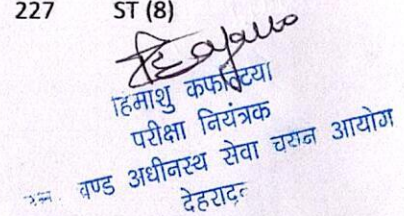 227 ST (8)
हिमांशु कफल्टिया
परीक्षा नियंत्रक
खण्ड अधीनस्थ सेवा चयन आयोग
देहरादून